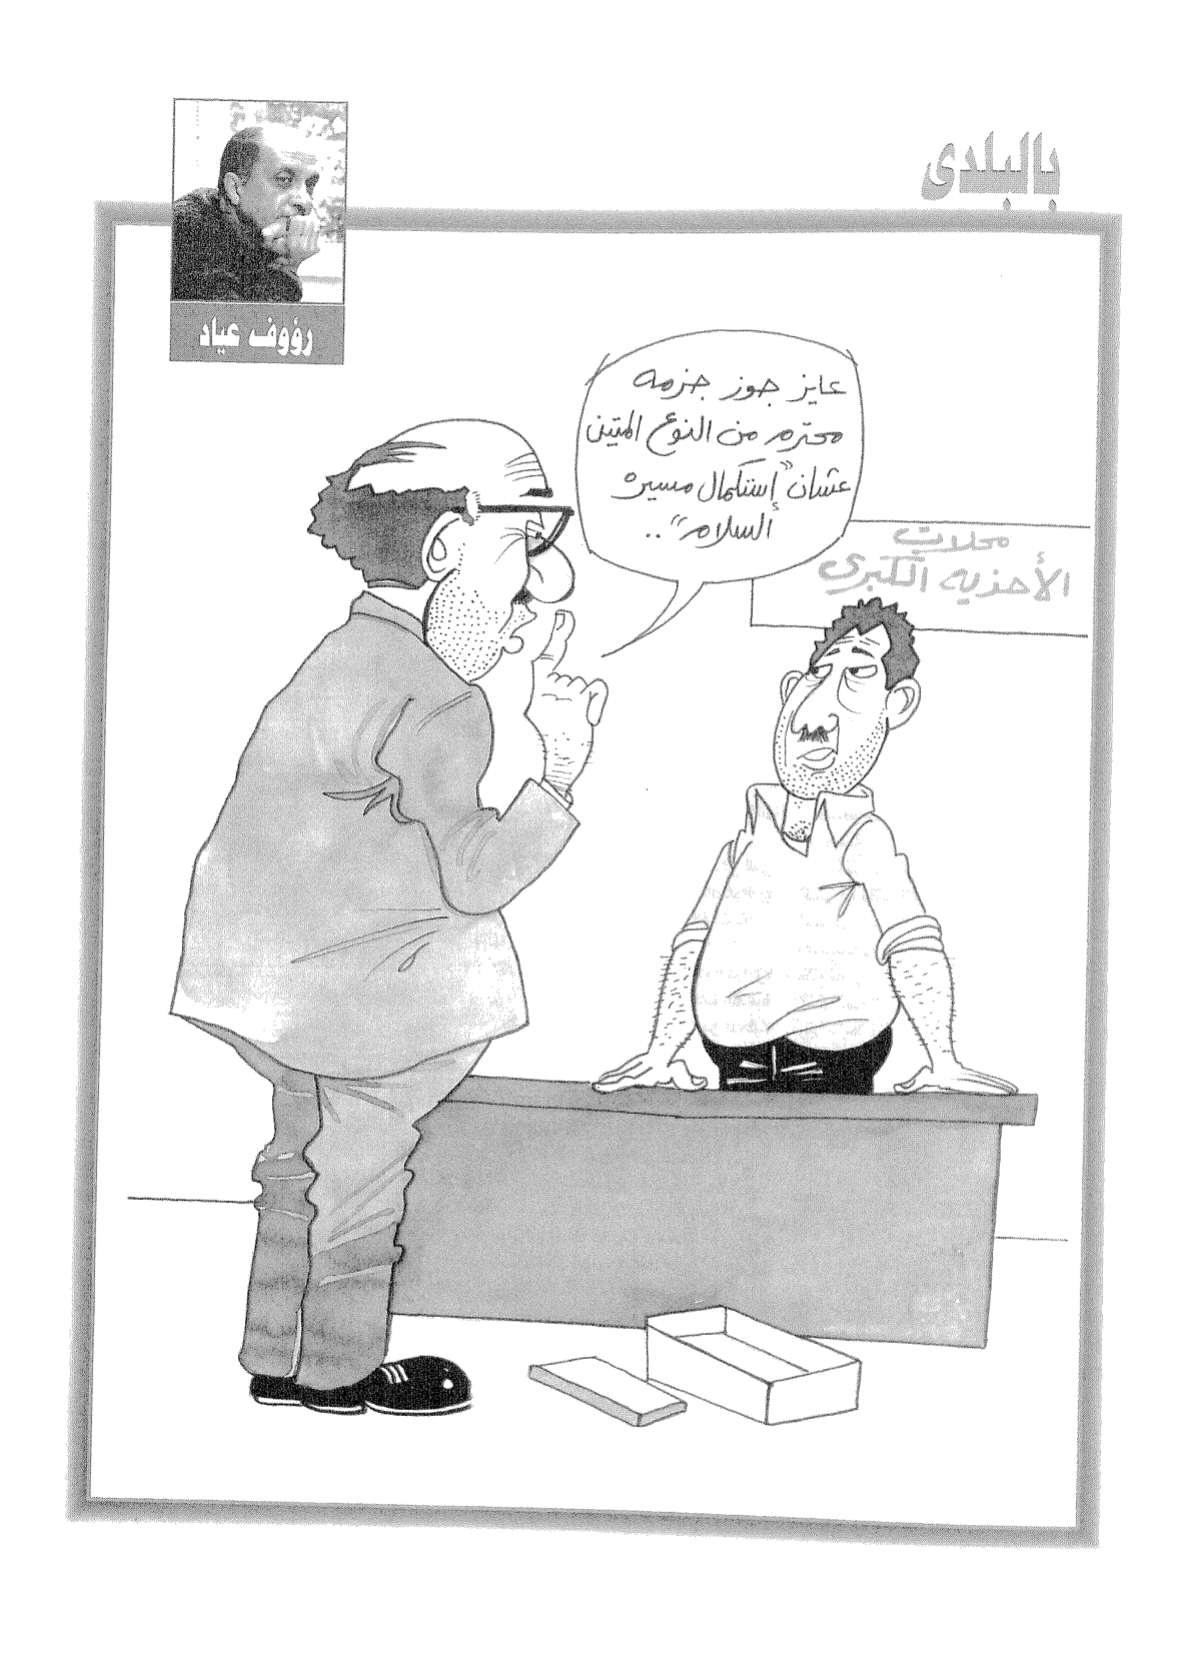 بالبلدى
رؤوف عياد
عايز جوز جزمه
محترم من النوع المتين
عشان "إستكمال مسيره
السلام"..
محلات
الأحذيه الكبرى